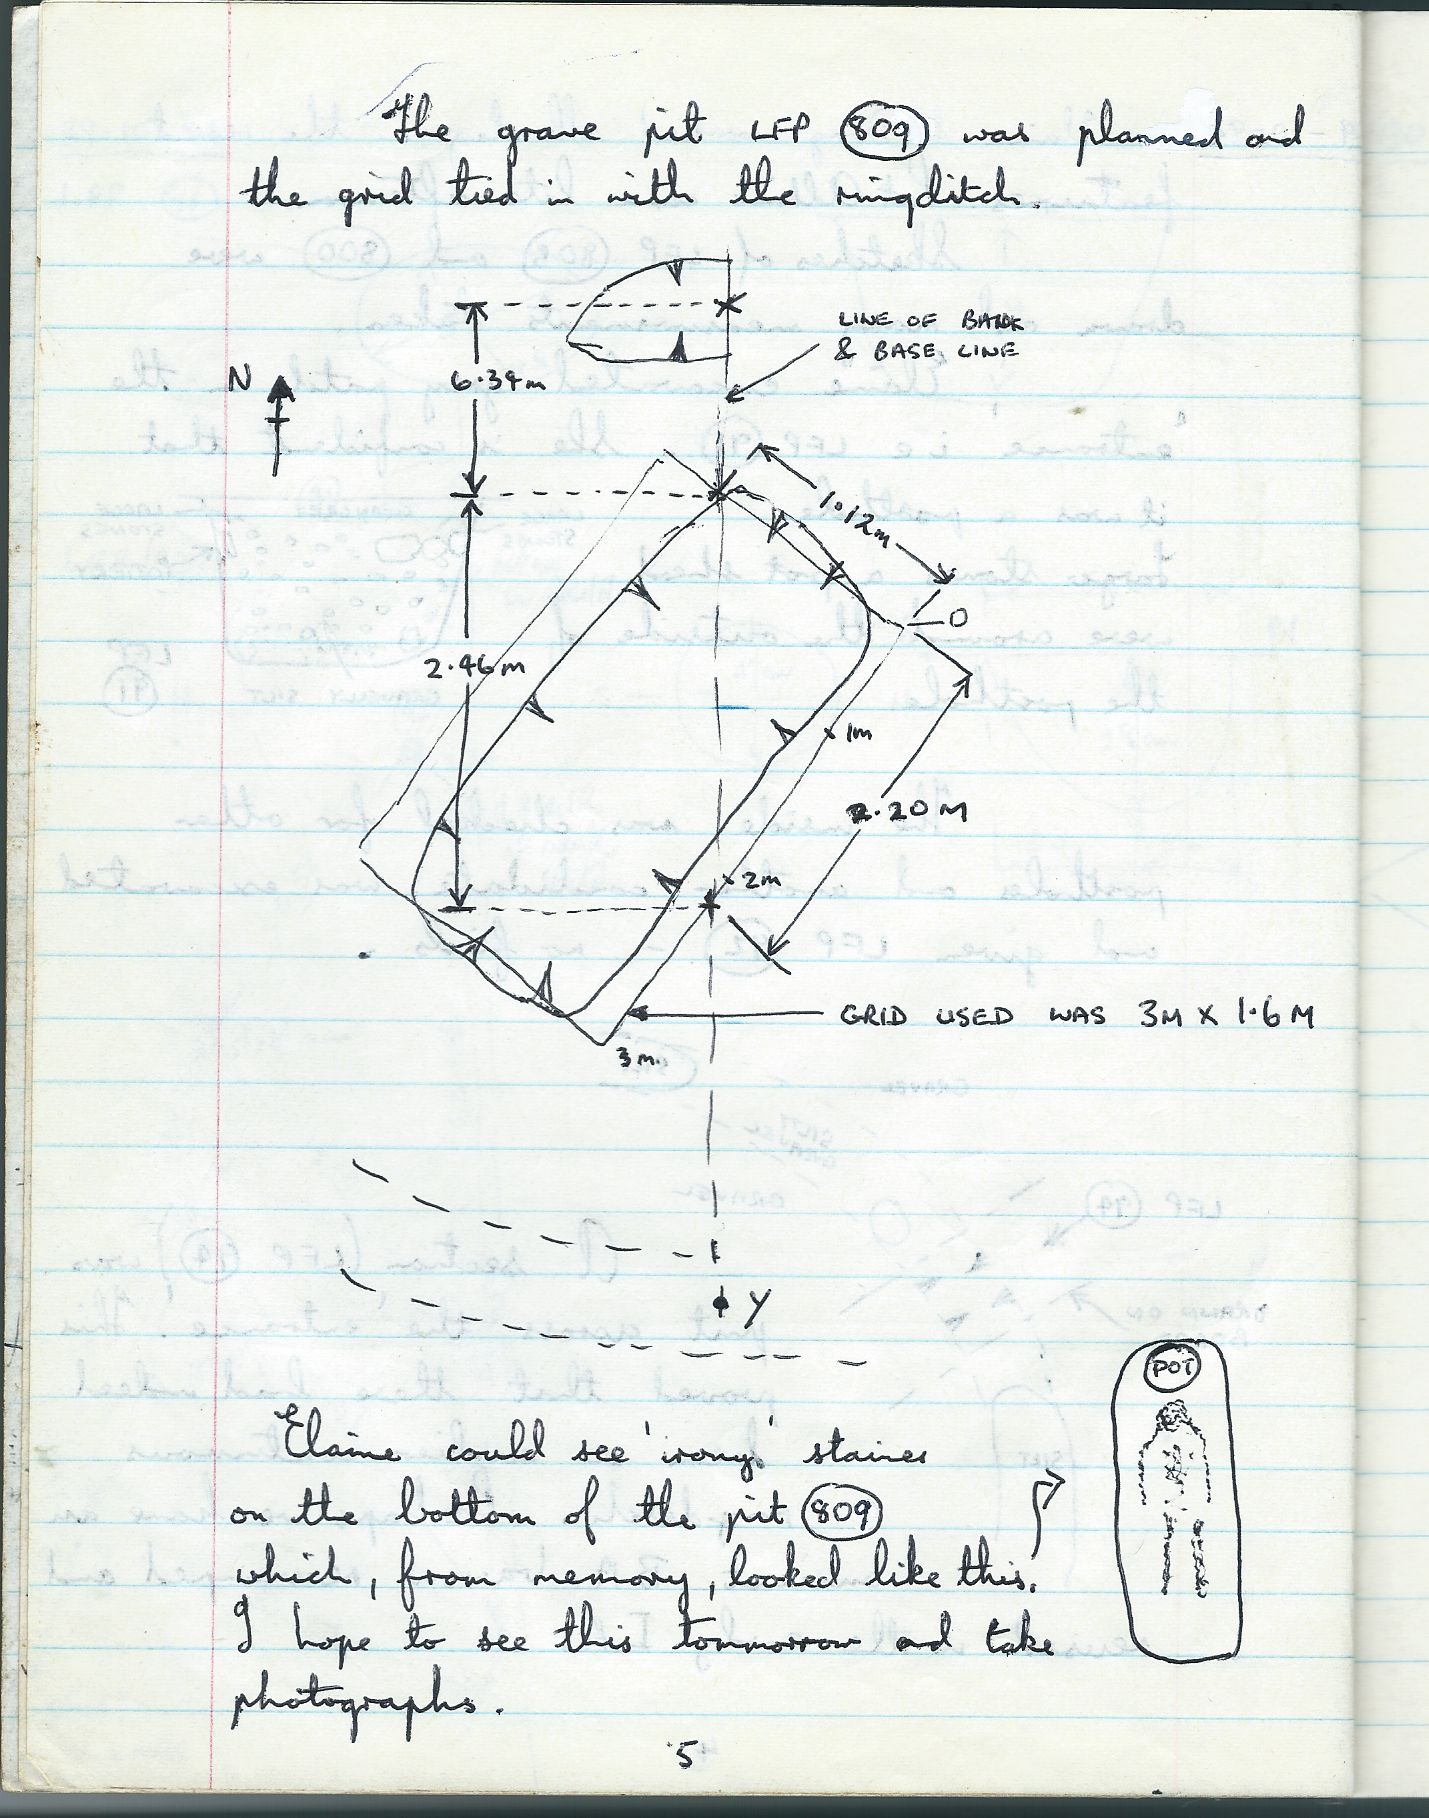 The grave pit LFP 809 was planned and
the grid tied in with the ringditch.
LINE OF BANK
& BASE LINE
6.34m
N
1.12m
O
2.46m
1m
2.20M
2m
GRID USED WAS 3M X 1.6M
3m.
Y
POT
Elaine could see 'irony' staines
on the bottom of the pit 809
which, from memory, looked like this.
I hope to see this tommorrow and take
photographs.
5